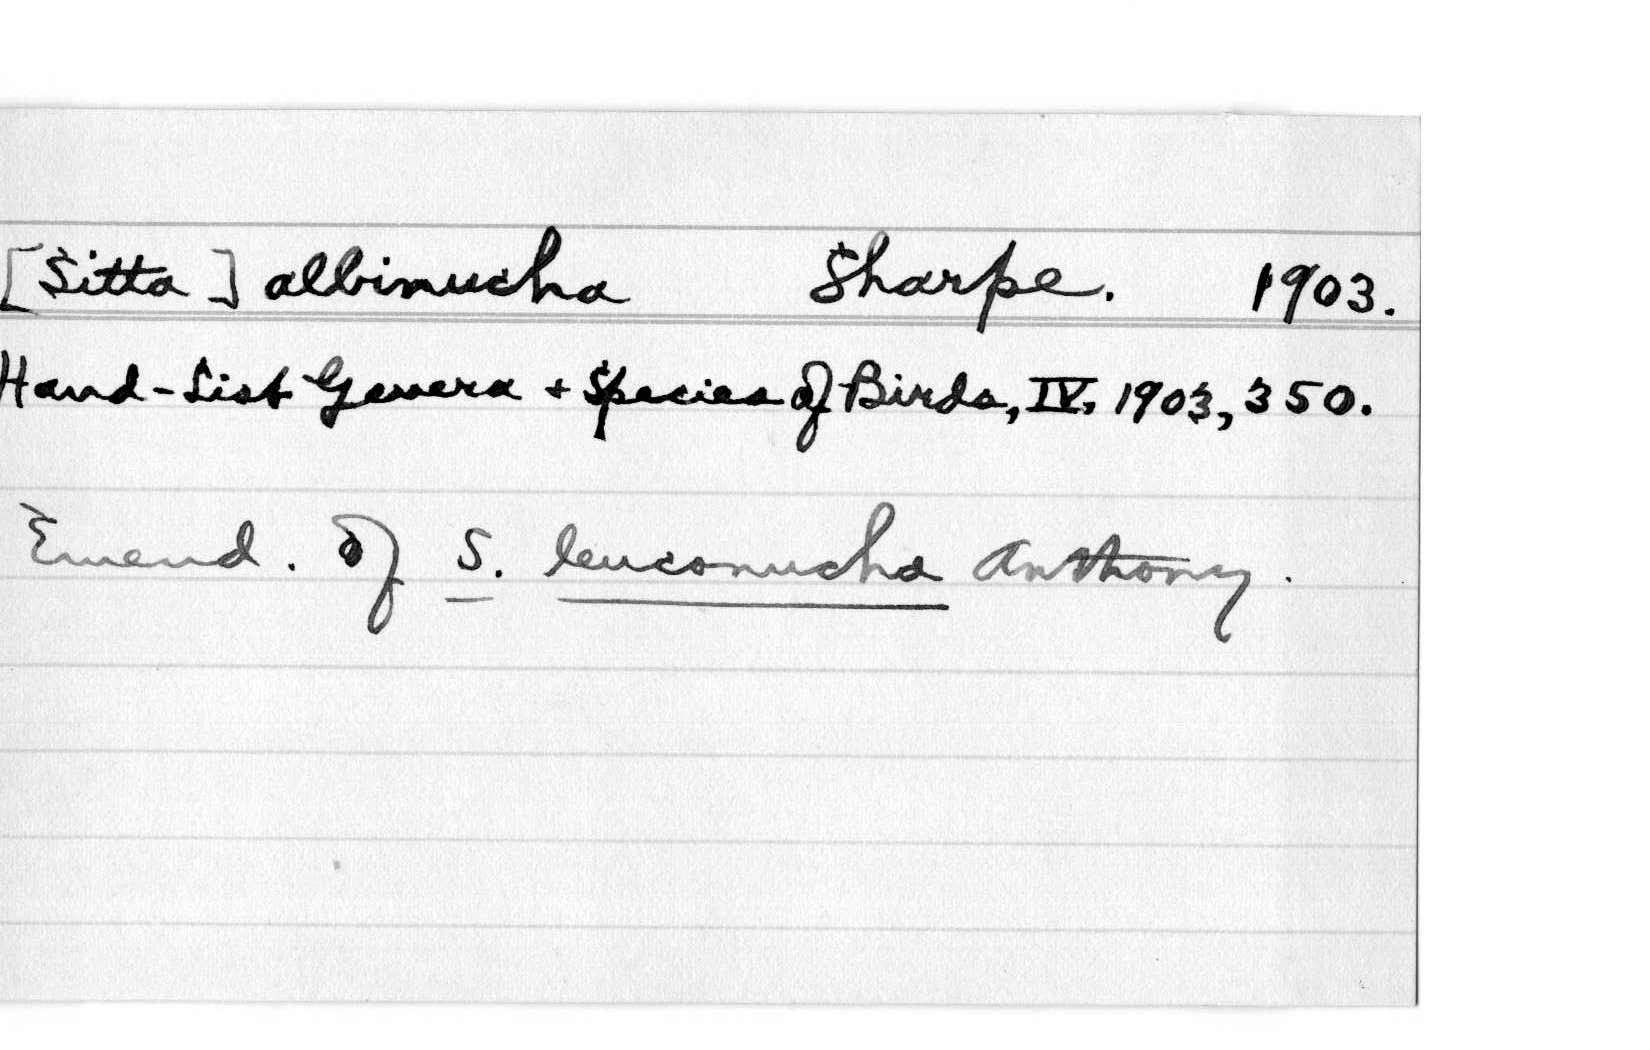 [Sitta] albinucha Sharpe. 1903.
Hand-List Genera + Species of Birds, IV, 1903, 350.
Emend. of S. leuconucha Anthony.